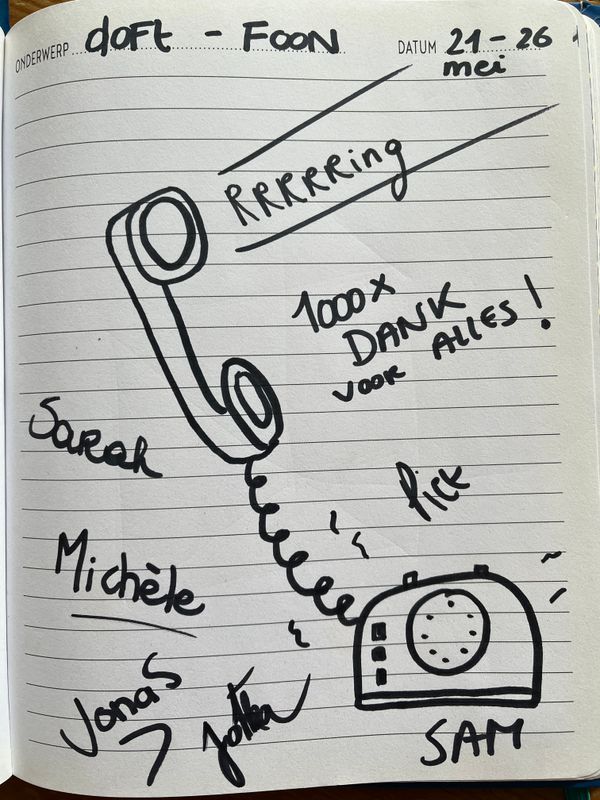 ONDERWERP doft - FOON
DATUM 21-26
mei
RRRRRing
1000x
DANK
VOOR ALLES!
Sarah
Pick
Michèle
Jonas
SAM